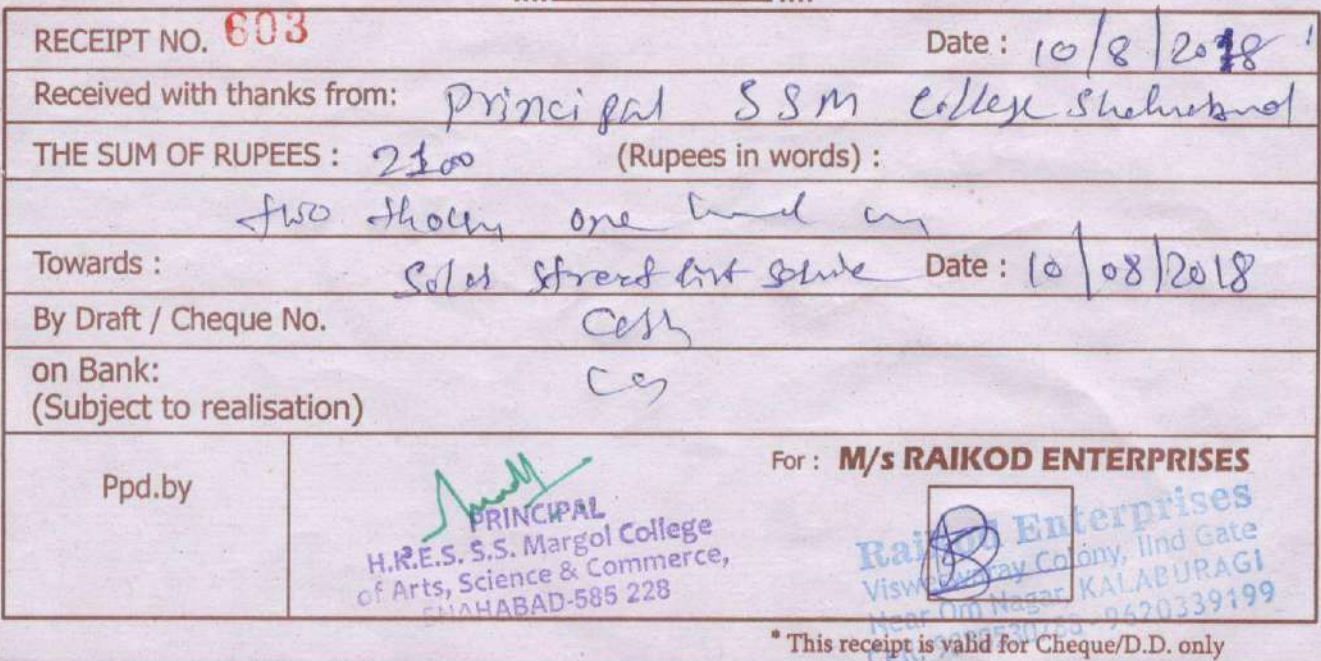 RECEIPT NO. 603 Date : 10/8/2018
Received with thanks from: Principal SSM College
THE SUM OF RUPEES : 2100 (Rupees in words) :
two one
Towards : Street Date : 10/08/2018
By Draft / Cheque No. Cash
on Bank:
(Subject to realisation)
Ppd.by
PRINCIPAL
H.K.E.S. S.S. Margol College
of Arts, Science & Commerce,
SHAHABAD-585 228
For : M/s RAIKOD ENTERPRISES
Raikod Enterprises
Colony, IInd Gate
Near Om Nagar, KALABURAGI
9620339199
* This receipt is valid for Cheque/D.D. only